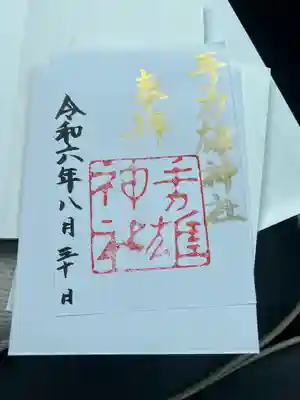 手力雄神社
奉拝
手力雄
神社
令和六年八月三十日